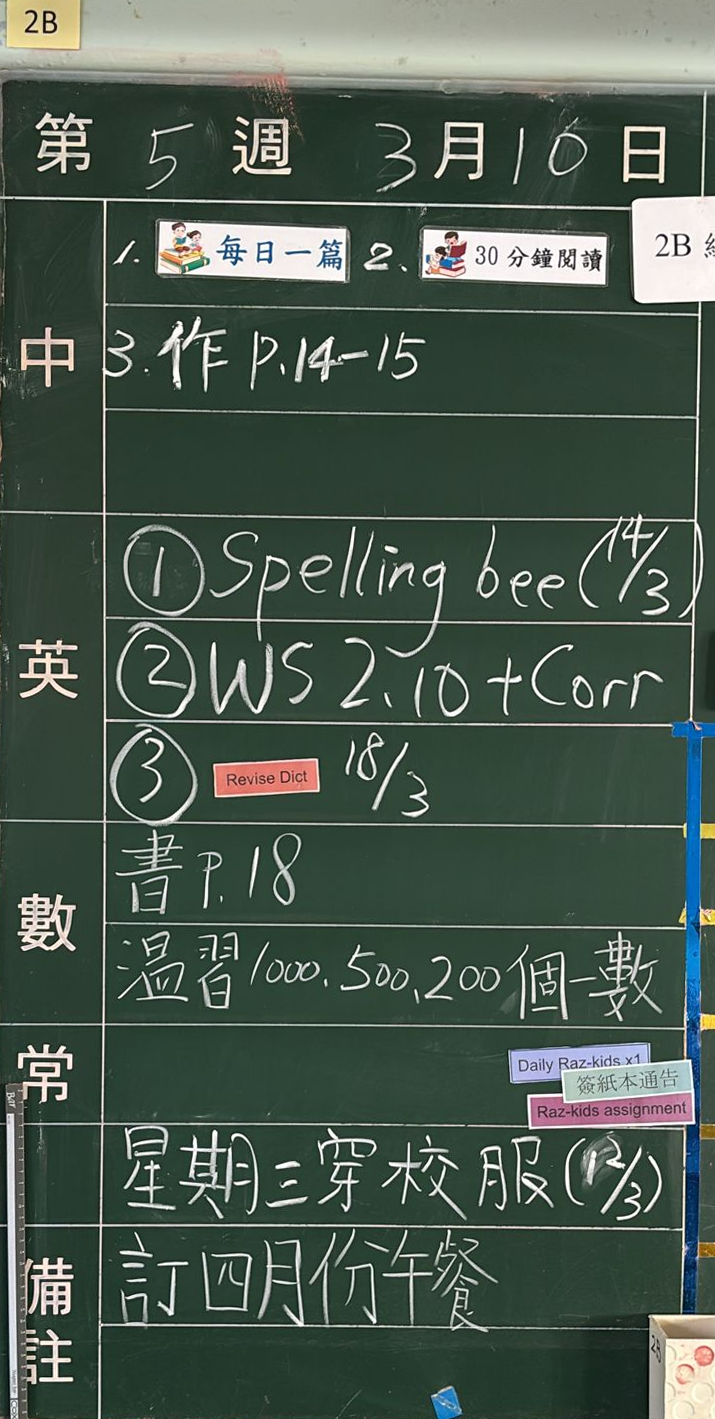 2B
第 5 週 3月10日
中
1. 每日一篇 2. 30分鐘閱讀
2B
3. 作 P.14-15
英
① Spelling bee (14/3)
② WS 2.10 + Corr
③ Revise Dict 18/3
數
書 P.18
溫習 1000, 500, 200個一數
常
Daily Raz-kids x1
簽紙本通告
Raz-kids assignment
備註
星期三穿校服 (12/3)
訂四月份午餐
2B